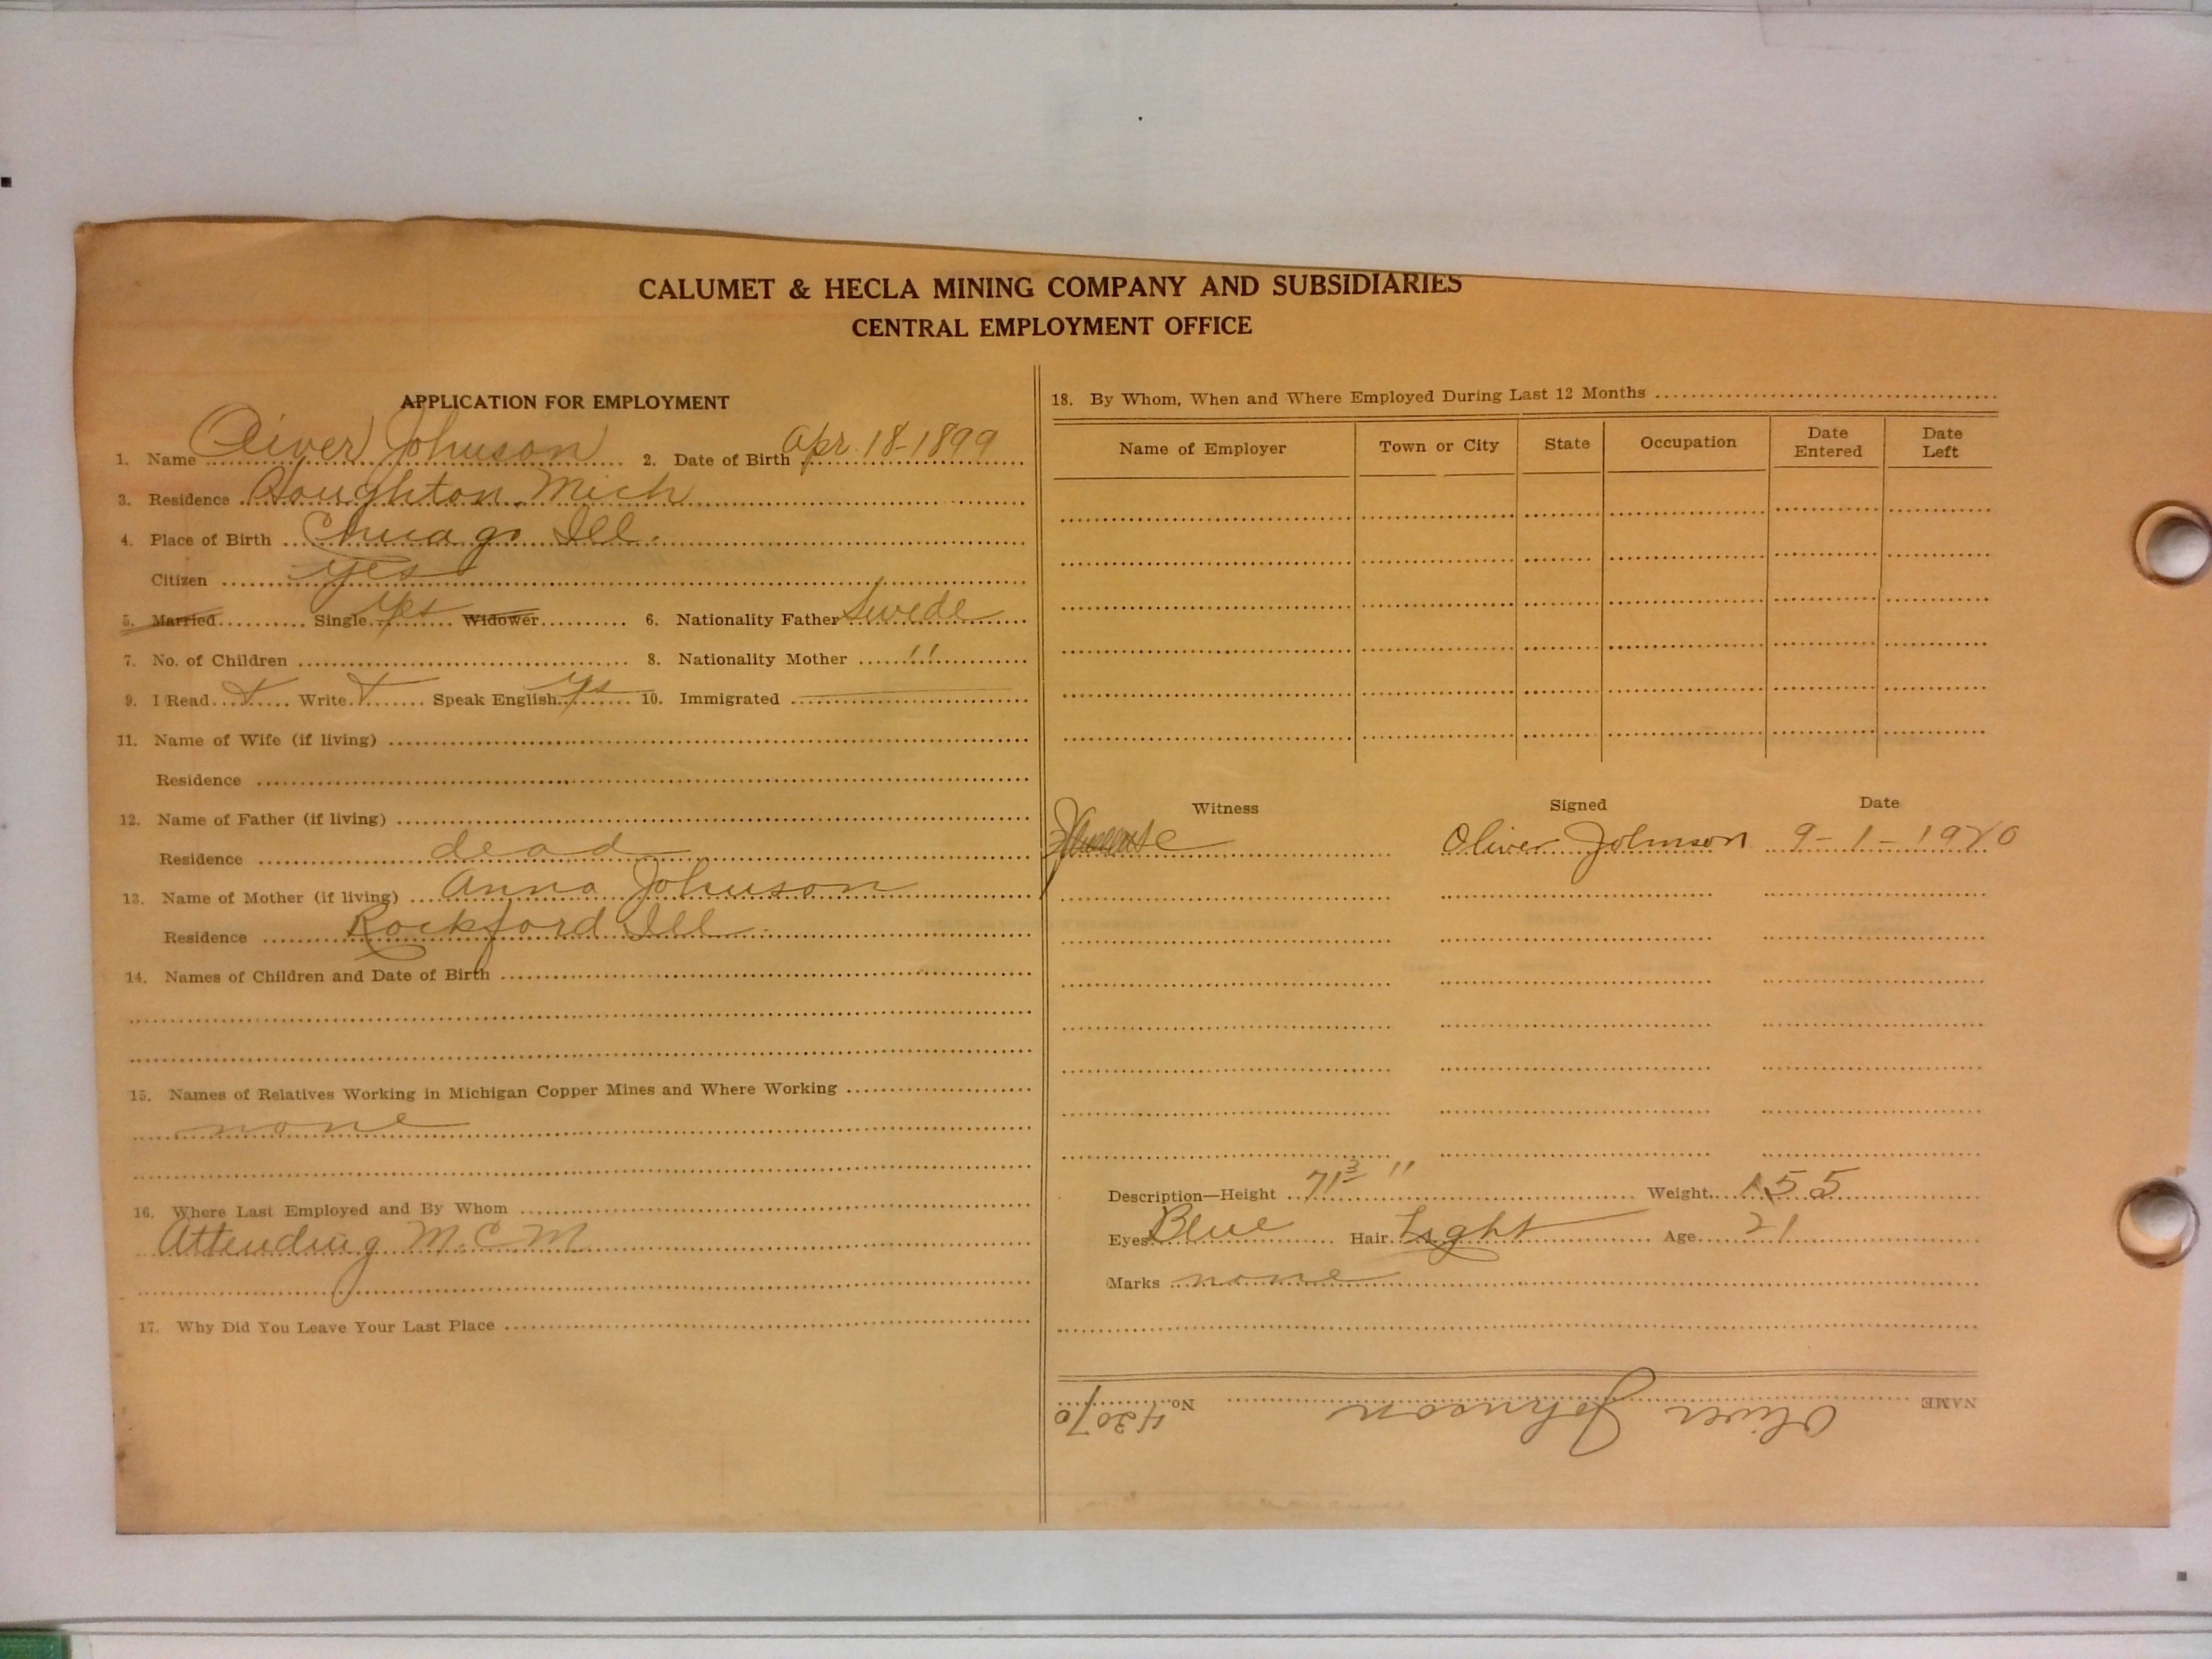 CALUMET & HECLA MINING COMPANY AND SUBSIDIARIES
CENTRAL EMPLOYMENT OFFICE
APPLICATION FOR EMPLOYMENT
1. Name Oliver Johnson 2. Date of Birth Apr. 18-1899
3. Residence Houghton, Mich
4. Place of Birth Chicago Ill.
Citizen yes
5. Married Single yes Widower 6. Nationality Father Swede
7. No. of Children 8. Nationality Mother "
9. I Read Write Speak English yes 10. Immigrated
11. Name of Wife (if living)
Residence
12. Name of Father (if living)
Residence dead
13. Name of Mother (if living) Anna Johnson
Residence Rockford Ill.
14. Names of Children and Date of Birth
15. Names of Relatives Working in Michigan Copper Mines and Where Working
none
16. Where Last Employed and By Whom
Attending M.C.M
17. Why Did You Leave Your Last Place
18. By Whom, When and Where Employed During Last 12 Months
Name of Employer Town or City State Occupation Date Entered Date Left
Witness Signed Date
Oliver Johnson 9-1-1920
Description—Height 71 3/4" Weight 155
Eyes Blue Hair Light Age 21
Marks none
NAME Oliver Johnson No. 42070